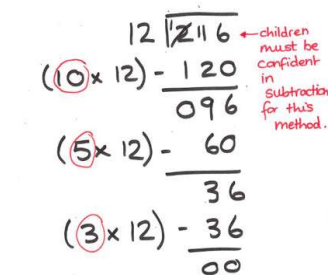 12 216 ← children
must be
confident
in
subtraction
for this
method.
(10 x 12) - 120
096
(5 x 12) - 60
36
(3 x 12) - 36
00